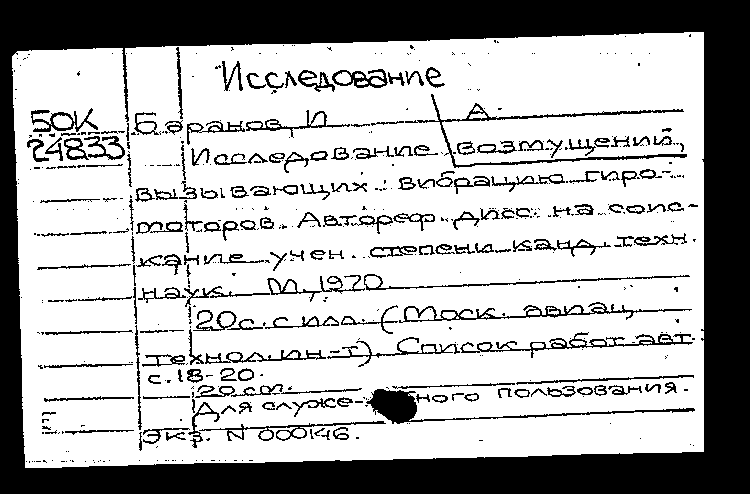 Исследование
50К
24833
Баранов, И А.
Исследование возмущений,
вызывающих вибрацию гиро-
моторов. Автореф. дисс. на соис-
кание учен. степени канд. техн.
наук. М., 1970.
20с. с илл. (Моск. авиац.
технол. ин-т). Список работ авт.:
с. 18-20.
20 см.
Для служебного пользования.
Экз. N 000146.